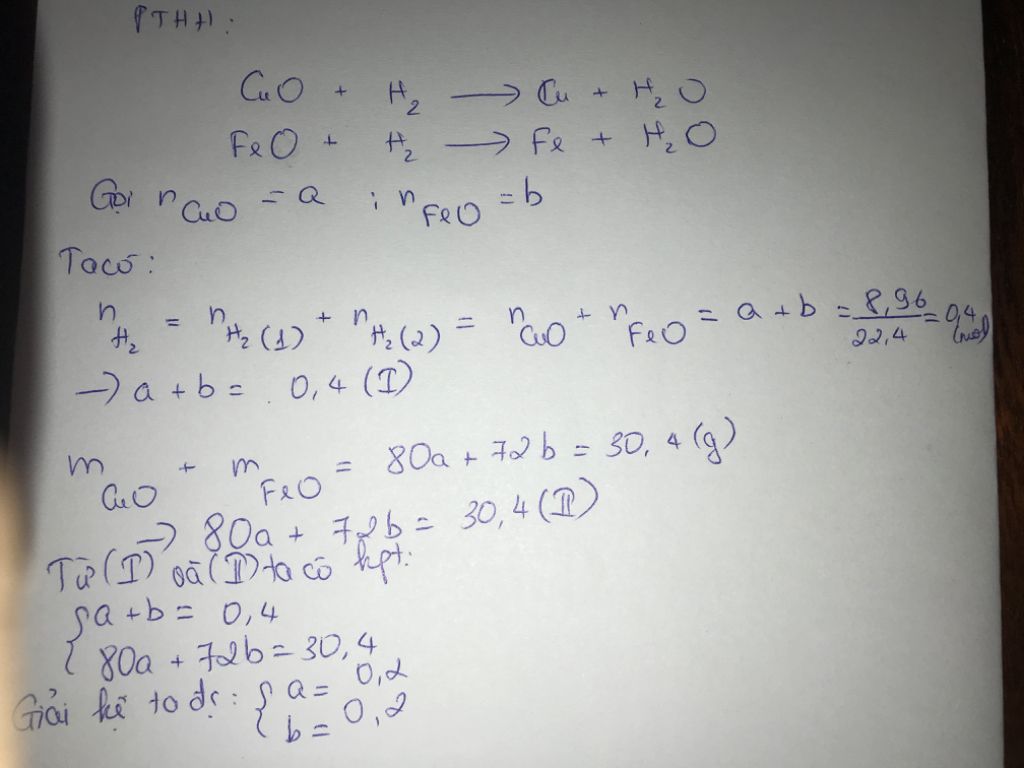 PTHH:
CuO + H₂ → Cu + H₂O
FeO + H₂ → Fe + H₂O
Gọi n CuO = a ; n FeO = b
Ta có:
n H₂ = n H₂ (1) + n H₂ (2) = n CuO + n FeO = a + b = 8,96/22,4 = 0,4 (mol)
→ a + b = 0,4 (I)
m CuO + m FeO = 80a + 72b = 30,4 (g)
→ 80a + 72b = 30,4 (II)
Từ (I) và (II) ta có hpt:
{ a + b = 0,4
80a + 72b = 30,4
Giải hệ ta đc: { a = 0,2
b = 0,2